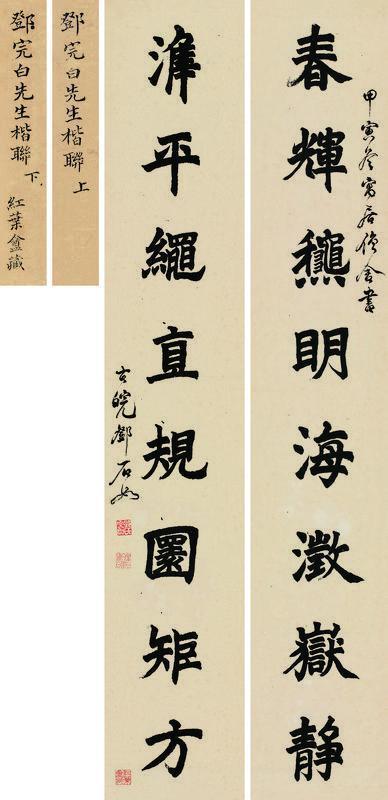 甲寅冬寓居僧舍書
春輝龝明海澂嶽静
準平繩直規圜矩方
古皖鄧石如
鄧完白先生楷聯上
鄧完白先生楷聯下
紅葉盦藏